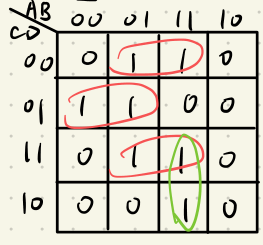 AB 00 01 11 10
CD
00 0 1 1 0
01 1 1 0 0
11 0 1 1 0
10 0 0 1 0